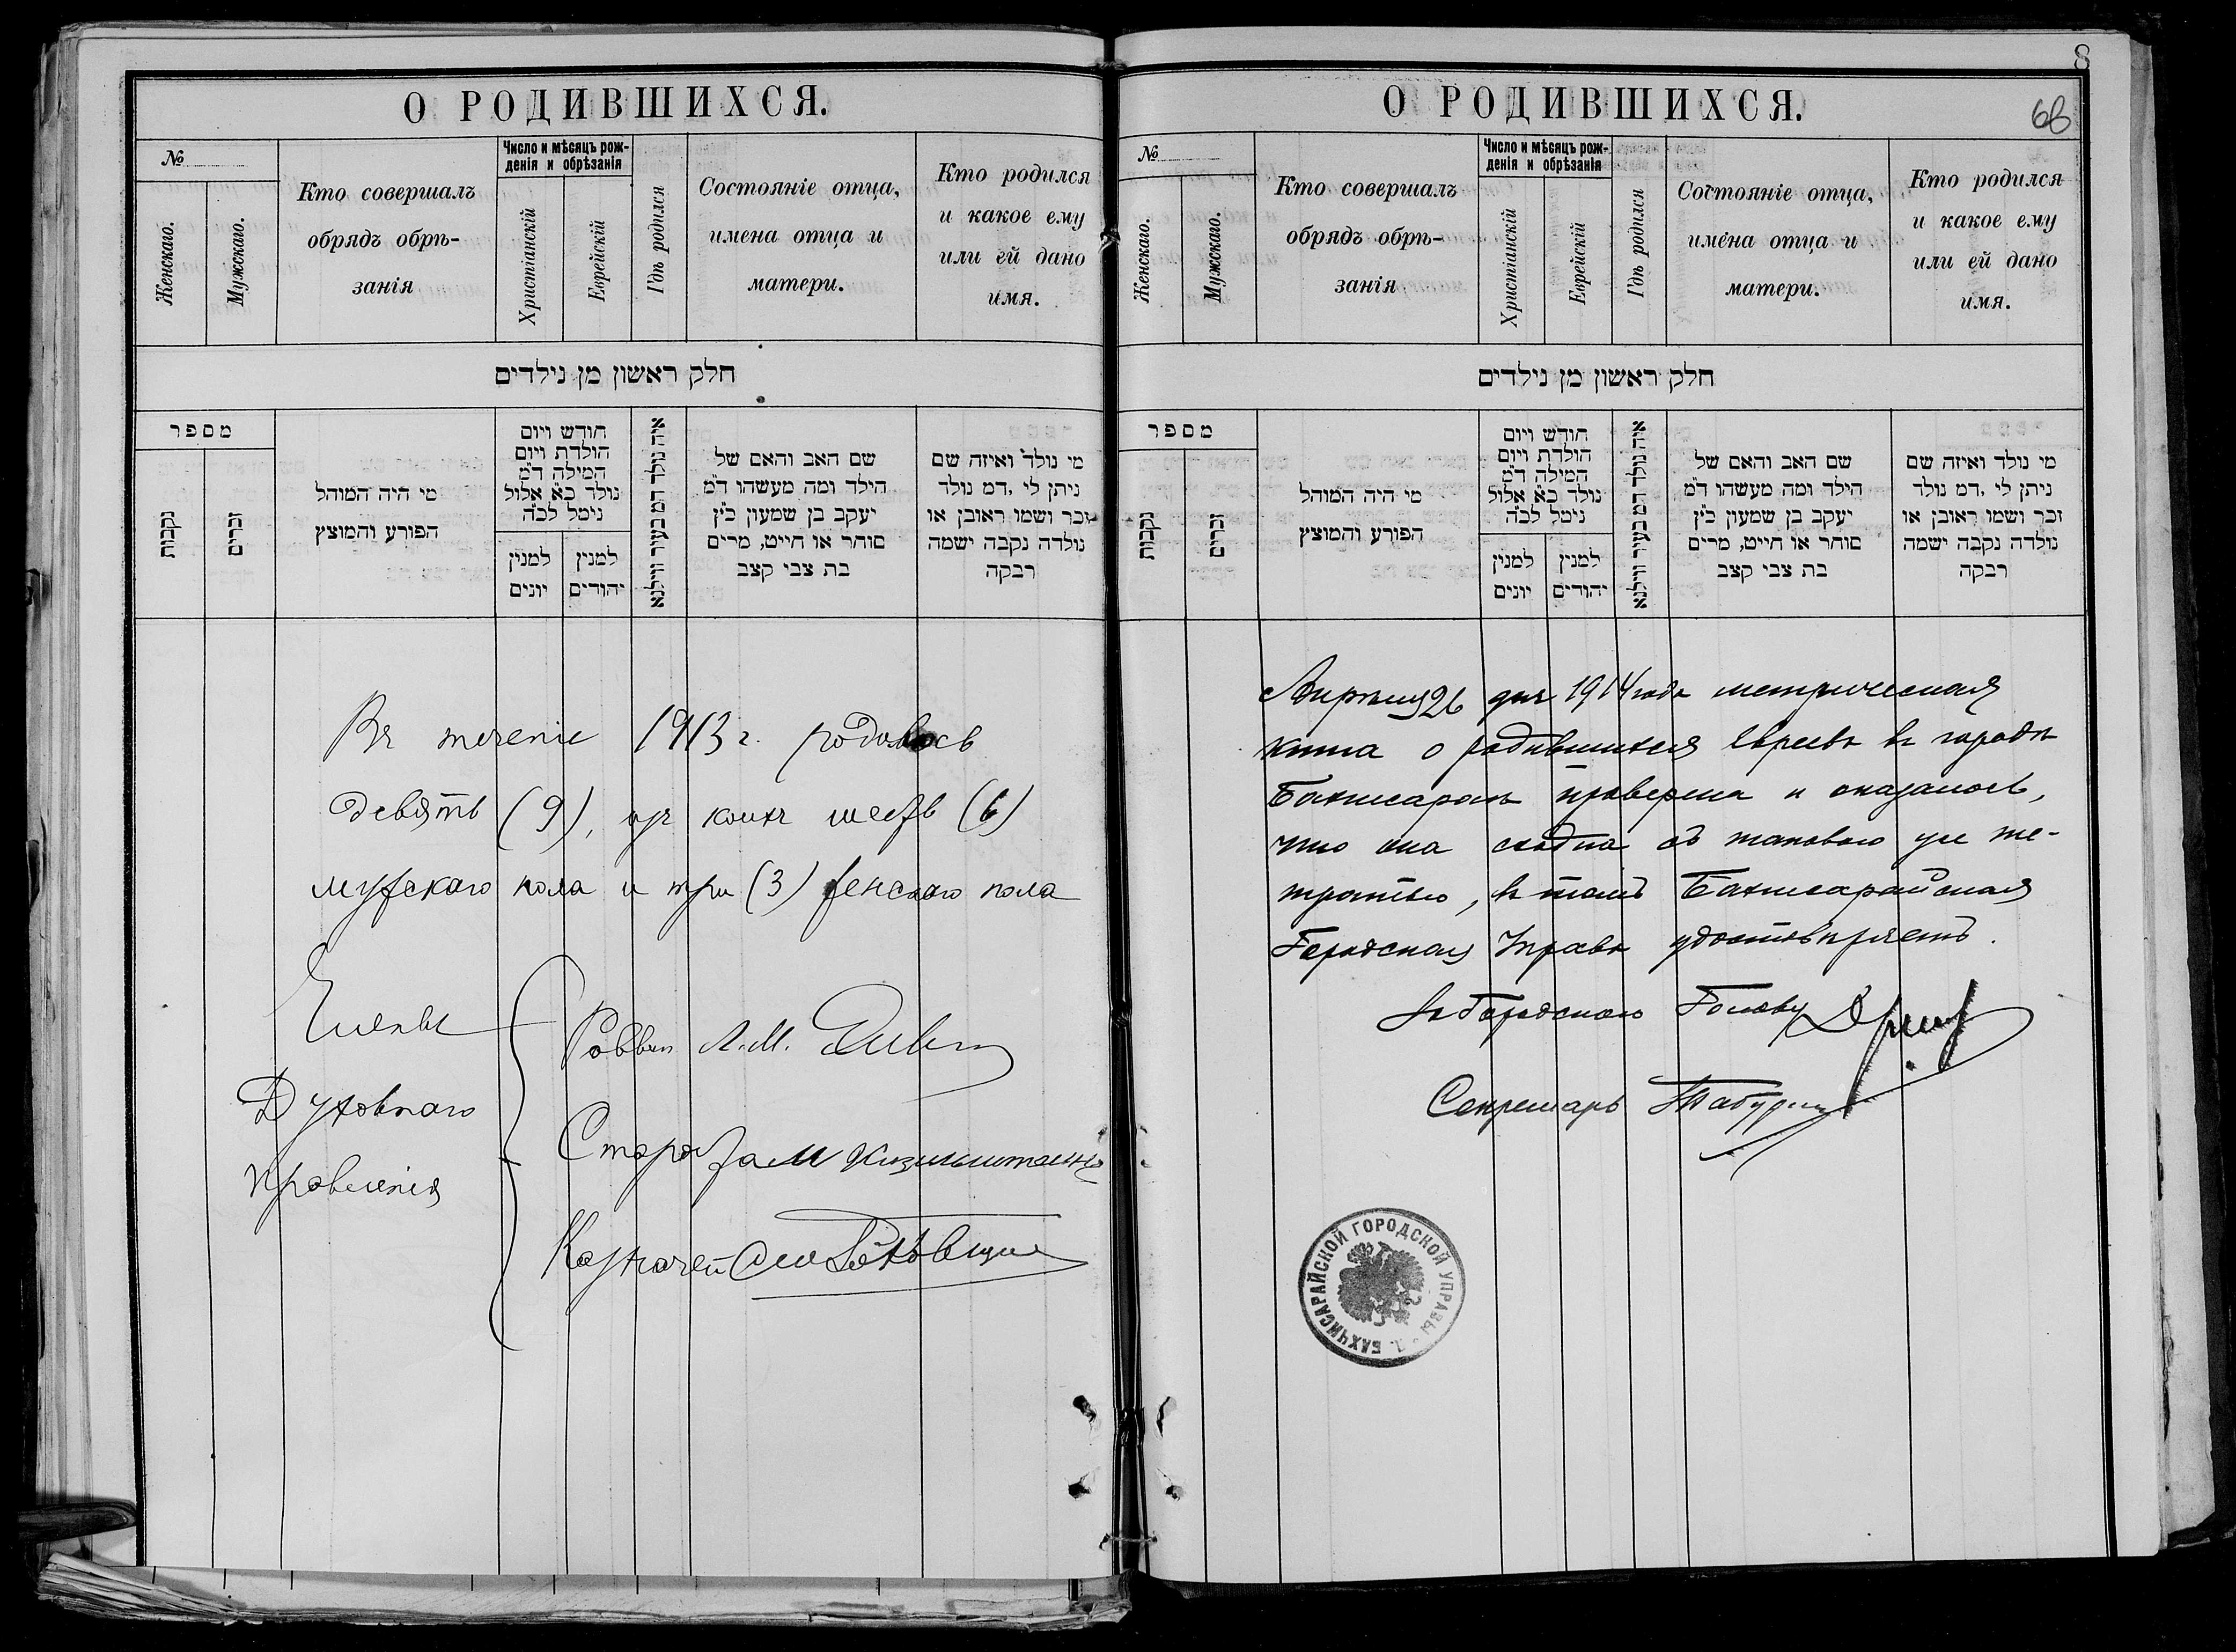 О РОДИВШИХСЯ.
№
Женскаго.
Мужскаго.
Кто совершалъ
обрядъ обрѣ-
занія
Число и мѣсяцъ рож-
денія и обрѣзанія
Христіанскій
Еврейскій
Гдѣ родился
Состояніе отца,
имена отца и
матери.
Кто родился
и какое ему
или ей дано
имя.
חלק ראשון מן נילדים
מספר
נקבות
זכרים
מי היה המוהל
הפורע והמוצץ
חודש ויום
הולדת ויום
המילה ד״מ
נולד כ״א אלול
נימל לכ״ה
למנין
יונים
למנין
יהודים
איה נולד דמ בעיר ווילנא
שם האב והאם של
הילד ומה מעשהו ד״מ
יעקב בן שמעון כ״ץ
סוחר או חייט, מרים
בת צבי קצב
מי נולד ואיזה שם
ניתן לי, דמ נולד
זכר ושמו ראובן או
נולדה נקבה ישמה
רבקה
Въ теченіе 1913 г. родилось
девять (9), изъ коихъ шесть (6)
мужскаго пола и три (3) женскаго пола
Члены
Духовнаго
Правленія
Раввин Л. М.
Староста М
Казначей
8
68
О РОДИВШИХСЯ.
№
Женскаго.
Мужскаго.
Кто совершалъ
обрядъ обрѣ-
занія
Число и мѣсяцъ рож-
денія и обрѣзанія
Христіанскій
Еврейскій
Гдѣ родился
Состояніе отца,
имена отца и
матери.
Кто родился
и какое ему
или ей дано
имя.
חלק ראשון מן נילדים
מספר
נקבות
זכרים
מי היה המוהל
הפורע והמוצץ
חודש ויום
הולדת ויום
המילה ד״מ
נולד כ״א אלול
נימל לכ״ה
למנין
יונים
למנין
יהודים
איה נולד דמ בעיר ווילנא
שם האב והאם של
הילד ומה מעשהו ד״מ
יעקב בן שמעון כ״ץ
סוחר או חייט, מרים
בת צבי קצב
מי נולד ואיזה שם
ניתן לי, דמ נולד
זכר ושמו ראובן או
נולדה נקבה ישמה
רבקה
Апрѣля 26 дня 1914 года метрическая
книга о родившихся евреевъ въ городѣ
Бахчисараѣ провѣрена и оказалось,
что она сходна съ таковою же те-
традью, въ томъ Бахчисарайская
Городская Управа удостовѣряетъ.
За Городского Голову
Секретарь
БАХЧИСАРАЙСКОЙ ГОРОДСКОЙ УПРАВЫ